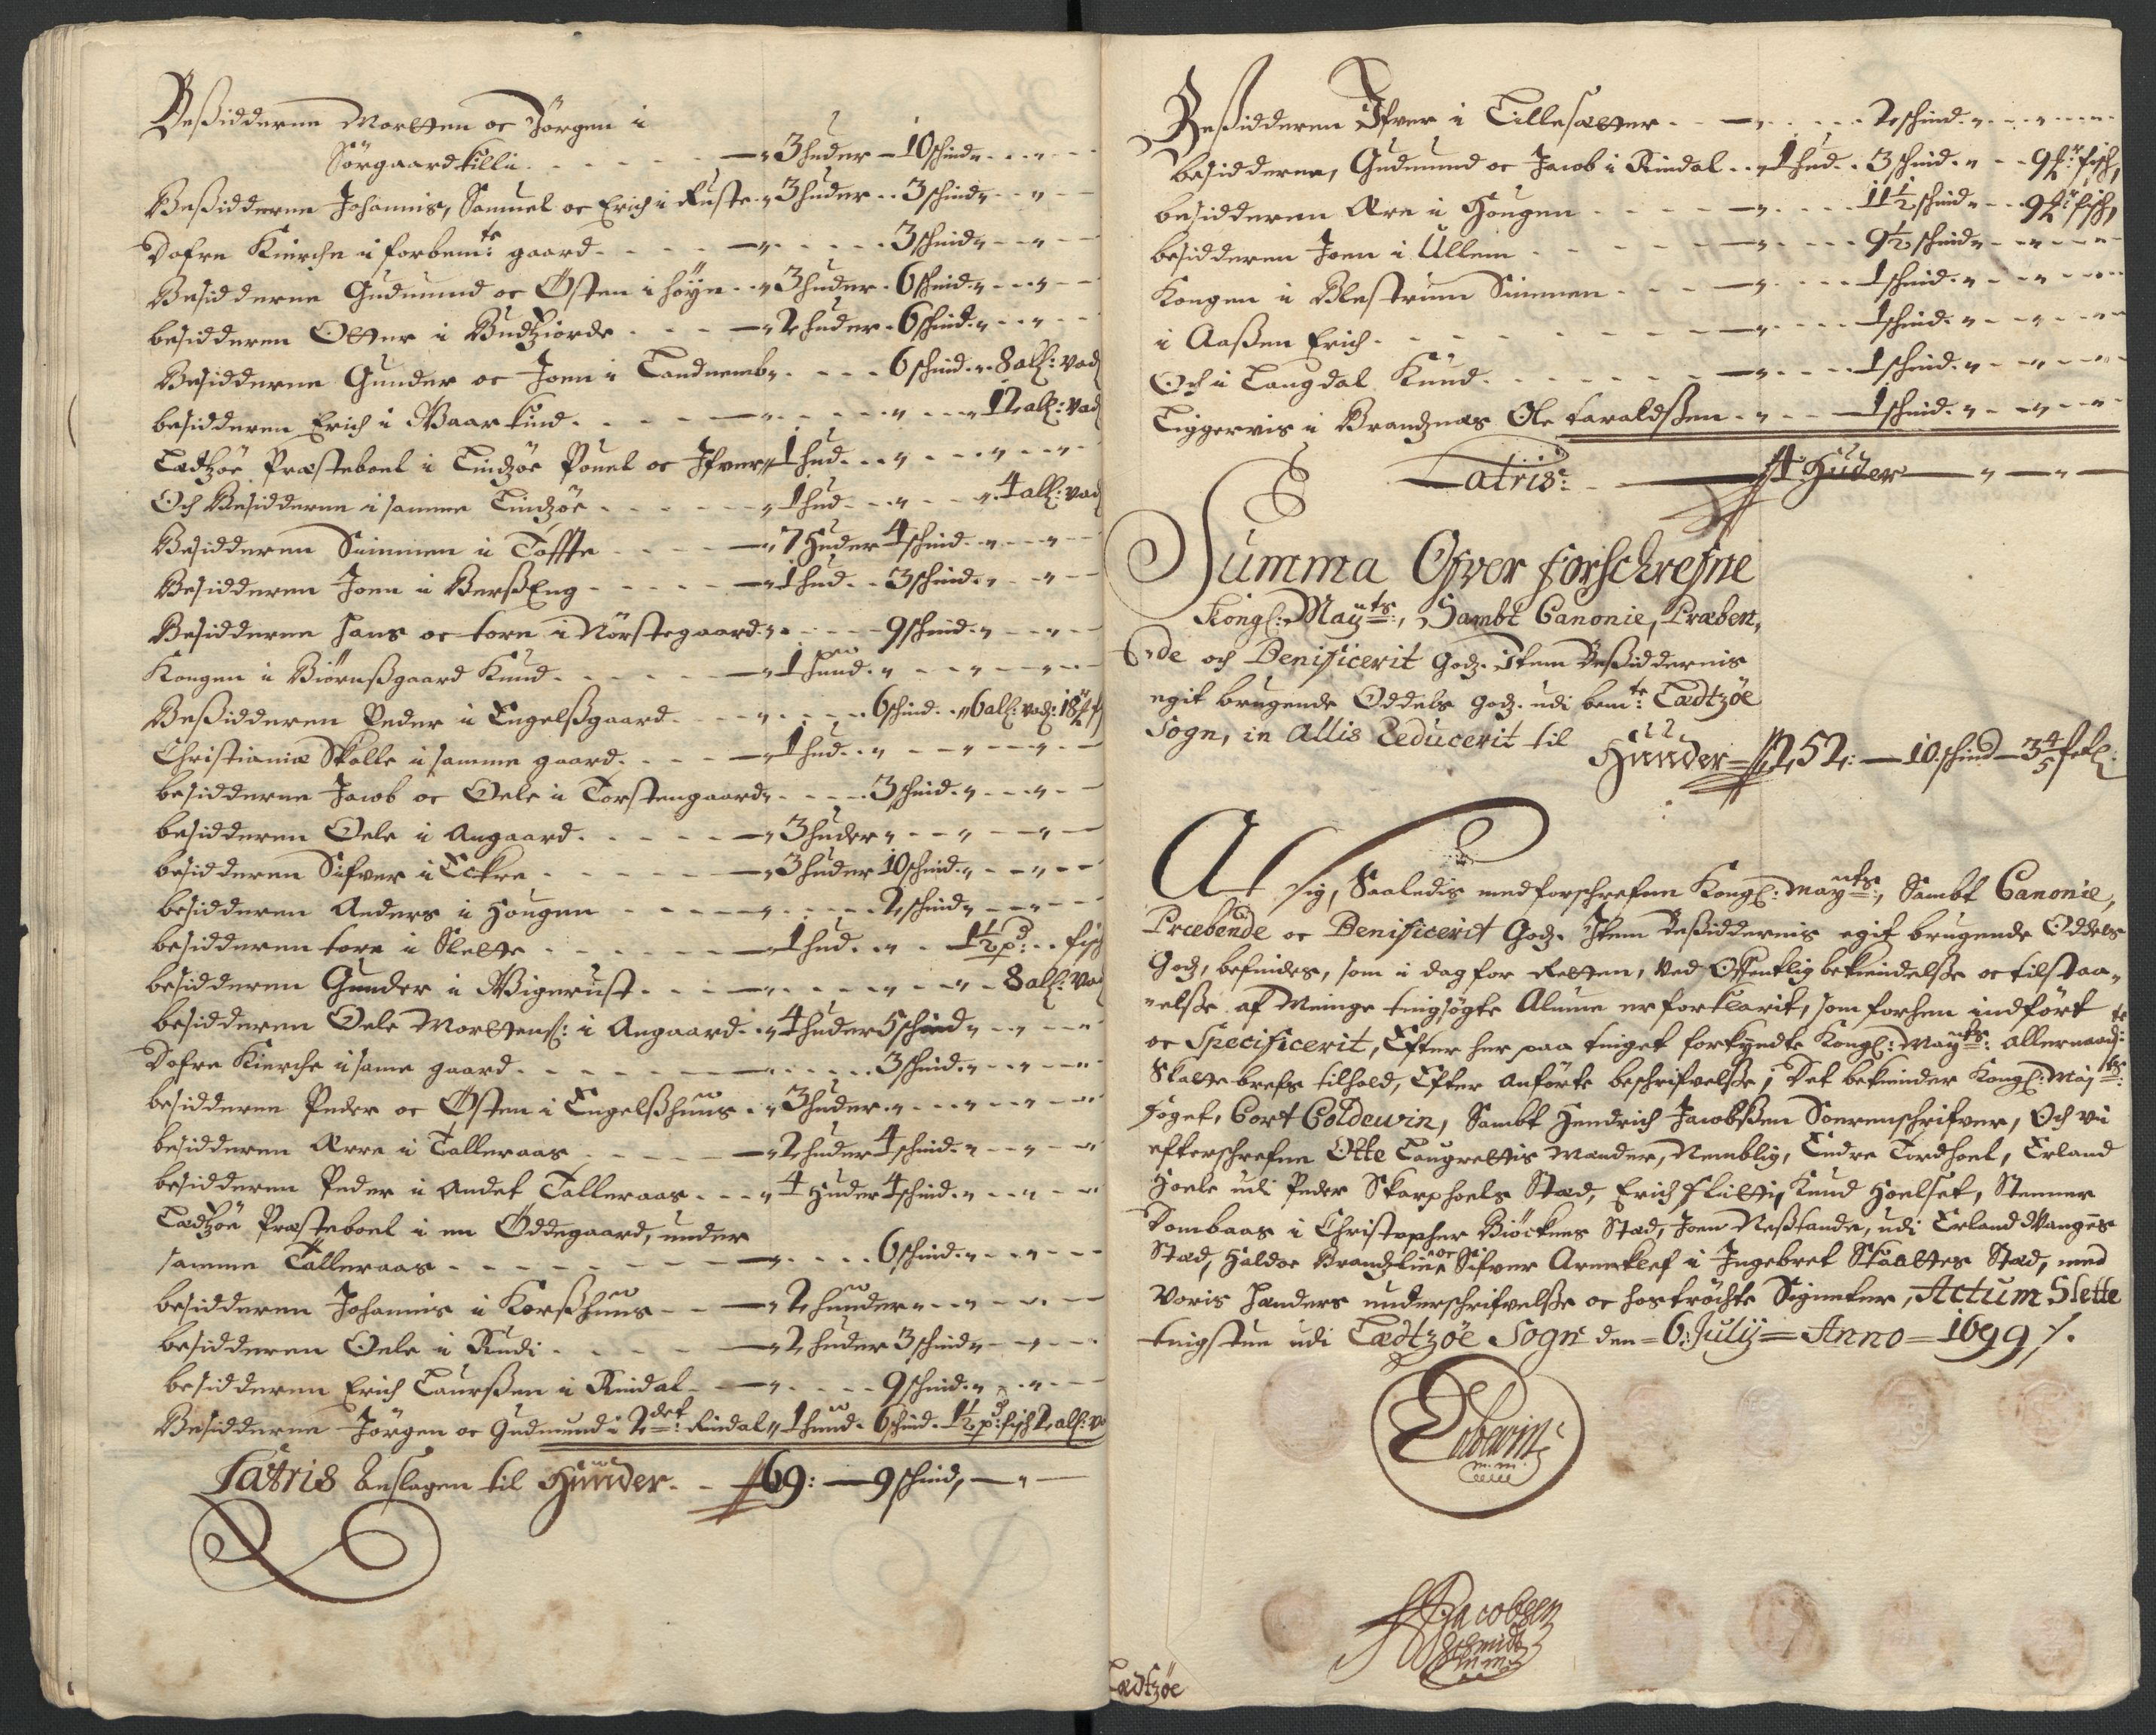 Beßidderne Mortten oc Jörgen i
Sörgaard killi - - - - 3 huder - 10 schind „ - - „ - -
Beßidderne Johannis, Samuel oc Erich i Ruste „ 3 huder - 3 schind „ - - „ - -
Dofre Kirche i forbemte: gaard - - - „ - - 3 schind „ - - „ - -
Besidderne Gudmund oc Östen i höye - „ 3 huder - 6 schind „ - - „ - -
besidderen Otter i Budtziorde - - „ 2 huder - 6 schind „ - - „ - -
Besidderne Gunder oc Joen i Landnemb „ - - - 6 schind „ 8 all: vad
besidderen Erich i Waarkind - - - „ - - „ - - 12 all: vad
Lædtzöe Præsteboel i Lindzöe Pouel oc Ifver „ 1 hud - - „ - - „ - - „ -
Och Besidderne i samme Lindzöe - - - „ 1 hud - - „ - - „ 4 all: vad
Besidderen Simmen i Toffte - - - „ 7 Huder 4 schind - „ - - „ - -
Besidderen Joen i BerßEng - - - - „ 1 hud - 3 schind „ - - „ - -
Besidderne Hans oc tore i Nörstegaard „ - - - 9 schind „ - - „ - -
Kongen i Biörnßgaard Knud - - - - „ 1 huud „ - - „ - - „ - -
Beßidderen Peder i Engelßgaard - - - „ - - 6 schind - „ 6 all: vad: 18
Christianiæ Skolle i samme gaard - - - „ 1 hud - „ - - „ - - „ - -
besidderne Jacob oc Oele i Torstengaard „ - - - 3 schind „ - - „ - -
besidderen Oele i Angaard - - - - „ 3 huder „ - - „ - - „ - -
besidderen Sifver i Eckre - - - - „ 3 huder 10 schind „ - - „ - -
besidderen Anders i Hougen - - - „ - - 2 schind „ - - „ - -
besidderen tore i Slette - - - - 1 hud - „ - - 1½ pd: - fisch
besidderen Gunder i Wigerust - - - „ - - „ - - „ - 8 all: vad
besidderen Oele Morttens: i Angaard - „ 4 huder 5 schind „ - - „ - -
Dofre Kirche i same gaard - - - - „ - - 3 schind „ - - „ - -
besidderne Peder oc Östen i Engelßhuus - „ 3 huder „ - - „ - - „ - -
besidderen Arre i Talleraas - - - - „ 2 huder 4 schind „ - - „ - -
besidderen Peder i andet Talleraas - - - „ 4 Huder 4 schind „ - - „ - -
Lædtzöe Præsteboel i en Öddegaard, under
samme Talleraas - - - - - „ - - 6 schind „ - - „ - -
besidderen Johannis i Korßhuus - - - „ 2 huuder „ - - „ - - „ - -
besidderen Oele i Rudi - - - - „ 2 huder 3 schind „ - - „ - -
besidderen Erich Laurßen i Rindal - - „ - - 9 schind „ - - „ - -
Besidderne Jörgen oc Gudmund i 2det: Rindal „ 1 huud - 6 schind - 1½ pd: fisch 2 all: v
Latris Anslagen til Huuder - - 69: - 9 schind, - „ -
Beßidderen Ifver i Lillesætter - - „ - - - 2 schind „ - - „ - -
besidderne, Gudmund oc Jacob i Rindal - „ 1 hud - 3 schind „ - - 9 fisch,
besidderen Are i Hougen - - - - „ - - 11½ schind „ - - 9 fisch,
besidderen Joen i Ullem - - - - „ - - 9½ schind „ - - „ - -
Kongen i Blestrum Simmen - - - „ - - 1 schind „ - - „ - -
i Aaßen Erich - - - - - „ - - 1 schind „ - - „ - -
Och i Laugdal Knud - - - - „ - - 1 schind „ - - „ - -
Liggervis i Brandznæs Ole taraldßen - „ - - 1 schind „ - - „ - -
Latris: - - 4 Huder - „ - „ -
Summa Ofver forschrefne
Kongl: Maytts:, Sambt Canonie, Præben„
„de och Benificerit Godz. Item Beßiddernis
egit brugende Oddels Godz. udi bemte: Lædtzöe
Sogn, in Allis Reducerit til
Huuder = 252: - 10 schind - 3⅘
At sig, Saaledis med forschrefne Kongl: Maytts:, Sambt Canonie,
Præbende oc Benificerit Godz. Item Beßiddernis egit brugende Oddels
Godz, befindes, som i dag for Retten, ved Offentlig bekiendelße oc tilstaa„
„elße af Meinge tingsögte Almue er forklarit, som forhen indfört
oc Specificerit, Efter her paa tinget forkyndte Kongl: Maytts: allernaadigste:
Skatte brefs tilhold, Efter anförte beschrifvelße; Det bekiender Kongl: Maytts:
Foget, Cort Coldewin, Sambt Hendrich Jacobßen Sorenschrifver, Och vii
efterschrefne Otte Laugrettis Mænder, Nemblig, Endre Tordhoel, Erland
Hoele udi Peder Skarphoels Stæd, Erich Flitti, Knud Hoelset, Stenner
Dombaas i Christopher Biöckens Stæd, Joen Neßlande, udi Erland Wanges
Stæd, Haldor Brandzlien oc Sifver Arneklef i Ingebret Skaattes Stæd, med
Voris Hænders underschrifvelße oc hoströchte Signeter, Actum Slette
tingstue udi Lædtzöe Sogn den = 6: Julij = Anno = 1699 /.
Coldewin
m:m:
HJacobsen
Schmidt
m:m:
Lædtzöe